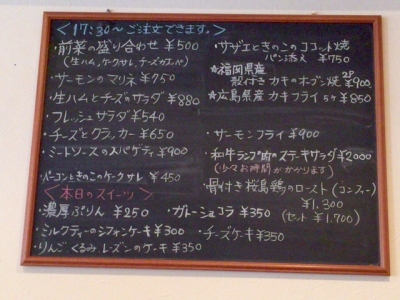 <17:30〜ご注文できます。>
・前菜の盛り合わせ ¥500
(生ハム、ケークサレ、チーズカナッペ)
・サーモンのマリネ ¥750
・生ハムとチーズのサラダ ¥880
・フレッシュサラダ ¥540
・チーズとクラッカー ¥650
・ミートソースのスパゲティ ¥900
・ベーコンときのこのケークサレ ¥450
<本日のスイーツ>
・濃厚ぷりん ¥250
・ガトーショコラ ¥350
・ミルクティーのシフォンケーキ ¥300
・チーズケーキ ¥350
・りんごくるみレーズンのケーキ ¥350
・サザエときのこのココット焼
パン添え ¥750
★福岡県産
殻付きカキのオーブン焼 2P ¥900
★広島県産 カキフライ 5ケ ¥850
・サーモンフライ ¥900
・和牛ランプ肉のステーキサラダ ¥2000
(少々お時間がかかります)
・骨付き桜島鶏のロースト(コンフィー)
¥1,300
(セット ¥1,700)